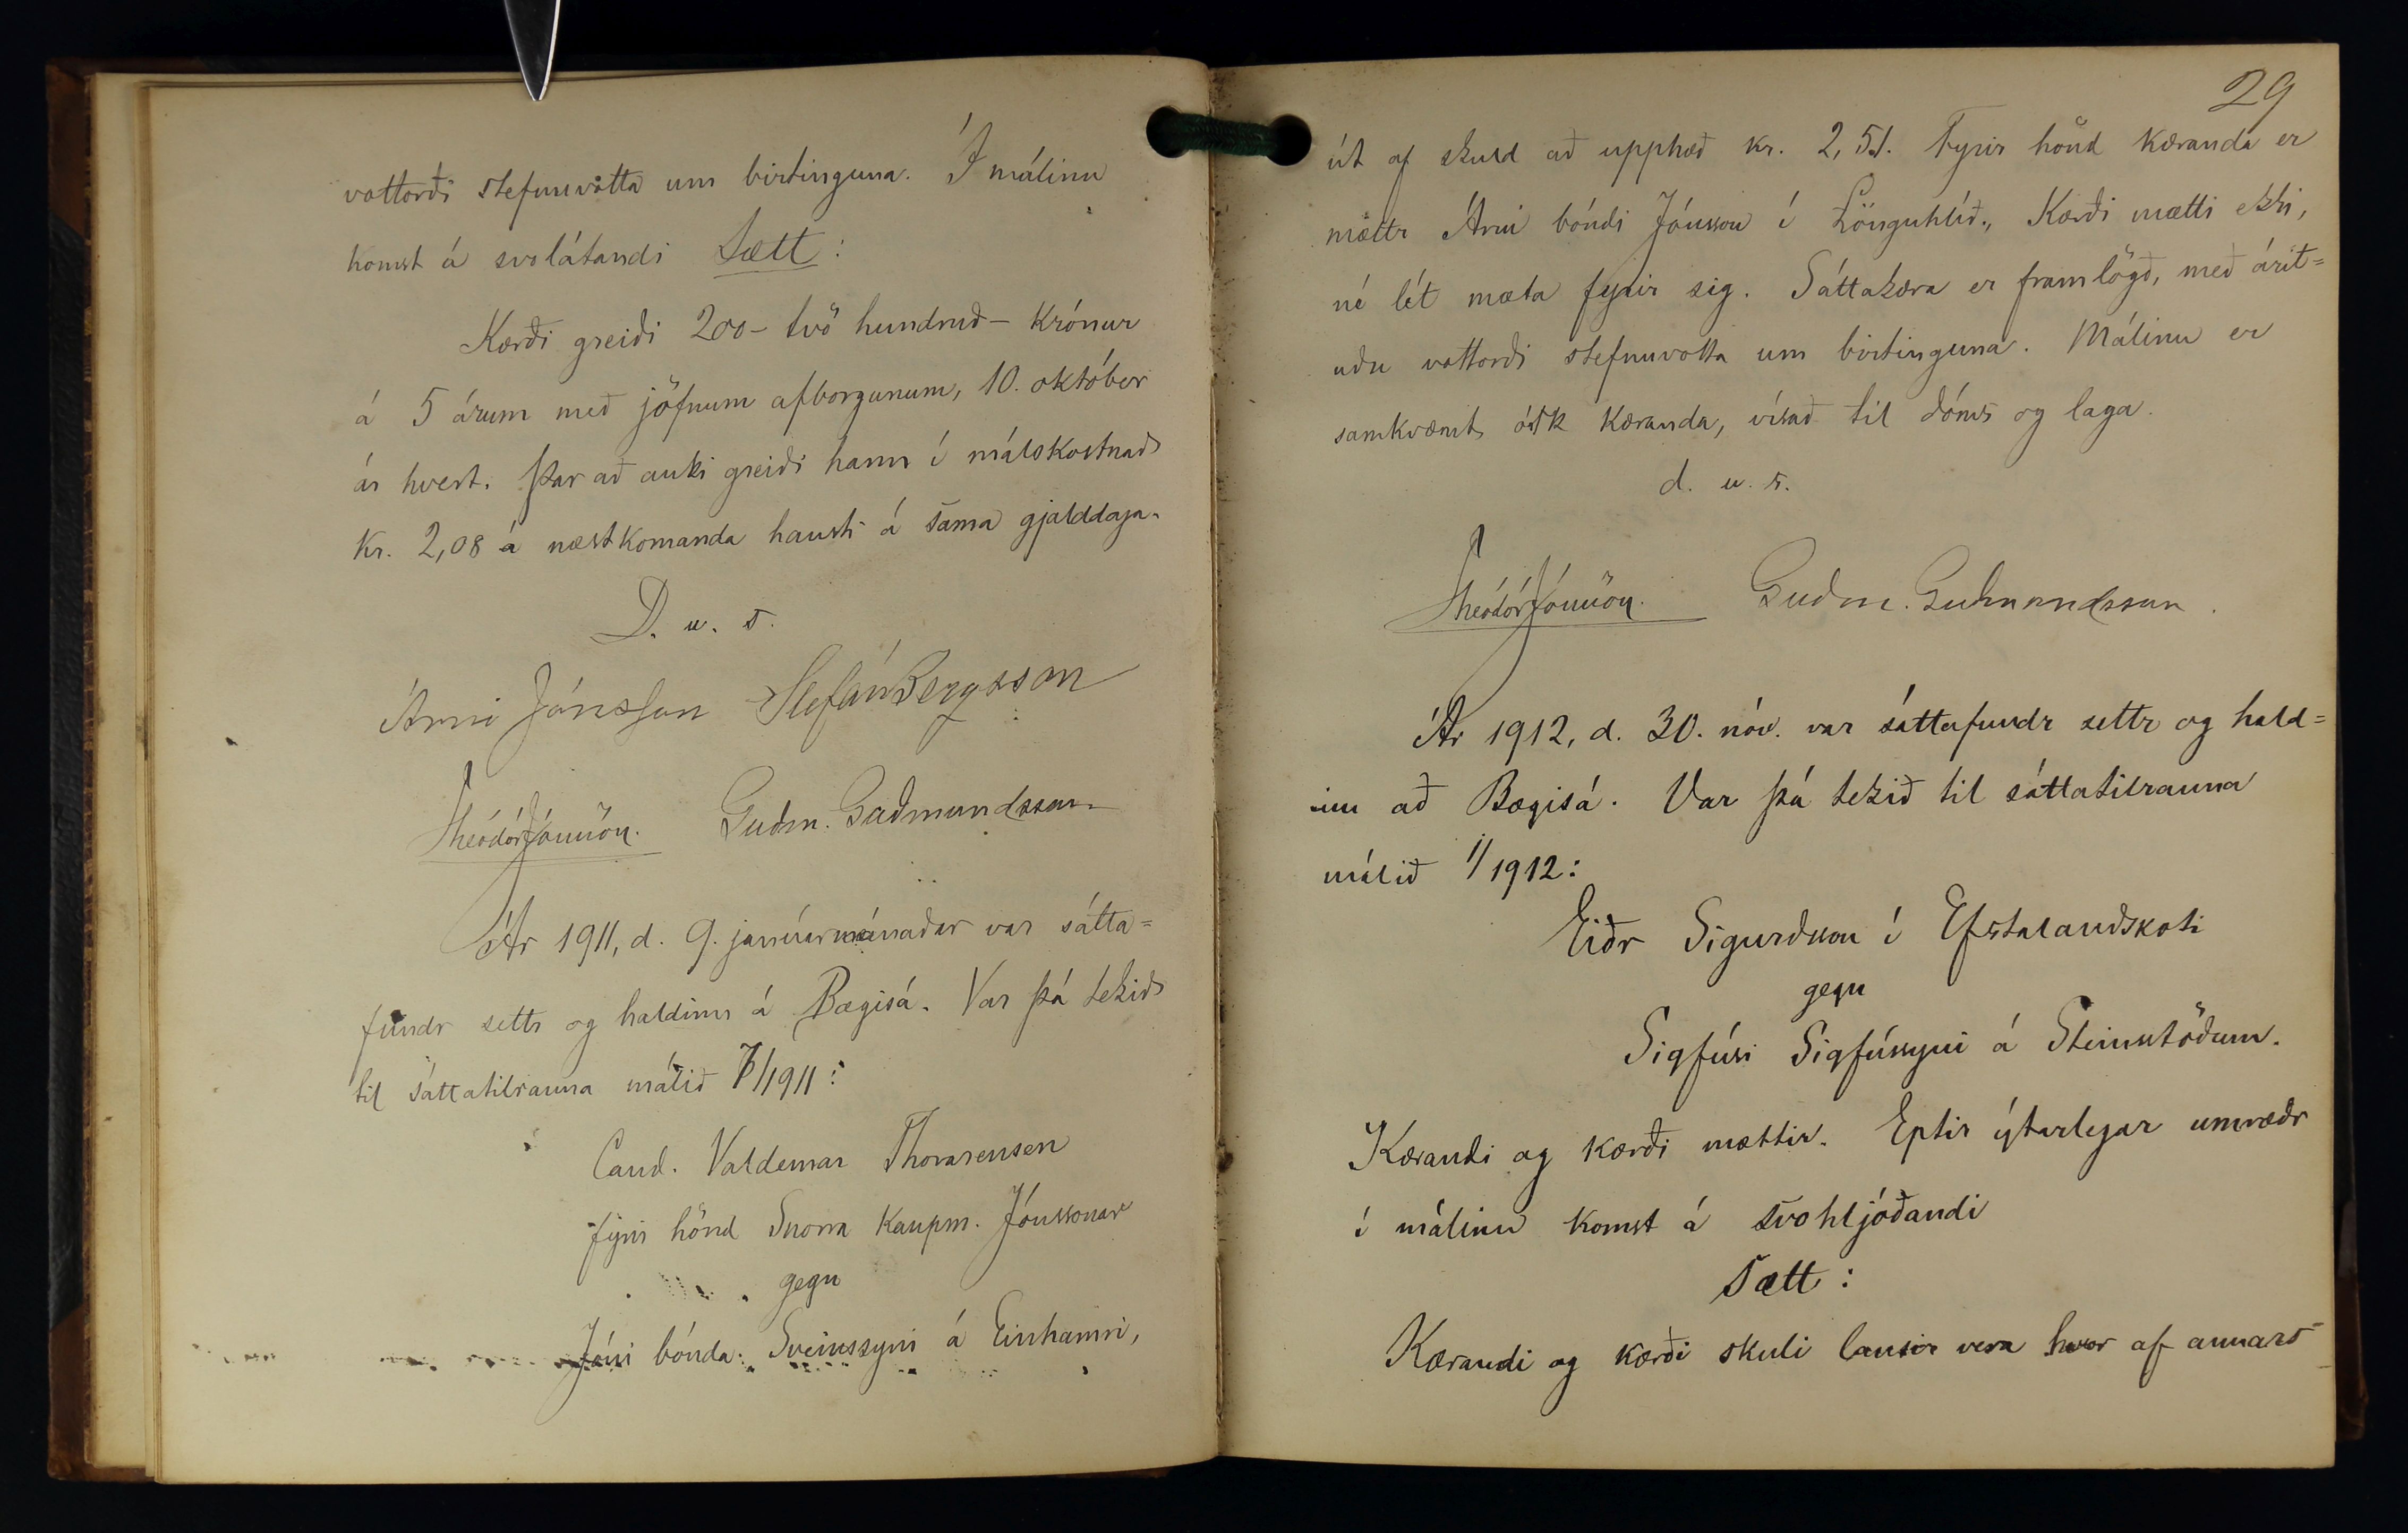 vottorði stefnuvotta um birtinguna. Í málinu
komst á svolátandi Sætt:
Kærði greiði 200 – tvö hundruð – krónur
á 5 árum með jöfnum afborgunum, 10. október
ár hvert. Þar að auki greiði hann í málskostnað
kr. 2,08 á næstkomanda hausti á sama gjalddaga.
D. u. s.
Árni Jónsson Stefán Bergsson
Theódór Jónsson. Guðm. Guðmundsson
Ár 1911, d. 9. janúarmánaðar var sátta=
fundr settr og haldinn á Bægisá. Var þá tekið
til sáttatilrauna málið 1/1911:
Cand. Valdemar Thorarensen
fyrir hönd Snorra kaupm. Jónssonar
gegn
Jóni bónda Sveinssyni á Einhamri,
29
út af skuld að upphæð kr. 2,51. Fyrir hönd kæranda er
mættr Árni bóndi Jónsson í Lönguhlíð., Kærði mætti ekki,
né lét mæta fyrir sig. Sáttakæra er framlögð, með árit=
uðu vottorði stefnuvotta um birtinguna. Málinu er
samkvæmt ósk kæranda, vísað til dóms og laga.
d. u. s.
Theódór Jónsson. Guðm. Guðmundsson.
Ár 1912, d. 30. nóv. var sáttafundr settr og hald=
inn að Bægisá. Var þá tekið til sáttatilrauna
málið 1/1912:
Eiðr Sigurðsson í Efstalandskoti
gegn
Sigfúsi Sigfússyni á Steinsstöðum.
Kærandi og kærði mættir. Eptir ýtarlegar umræðr
í málinu komst á svohljóðandi
Sætt:
Kærandi og kærði skuli lausir vera hvor af annars